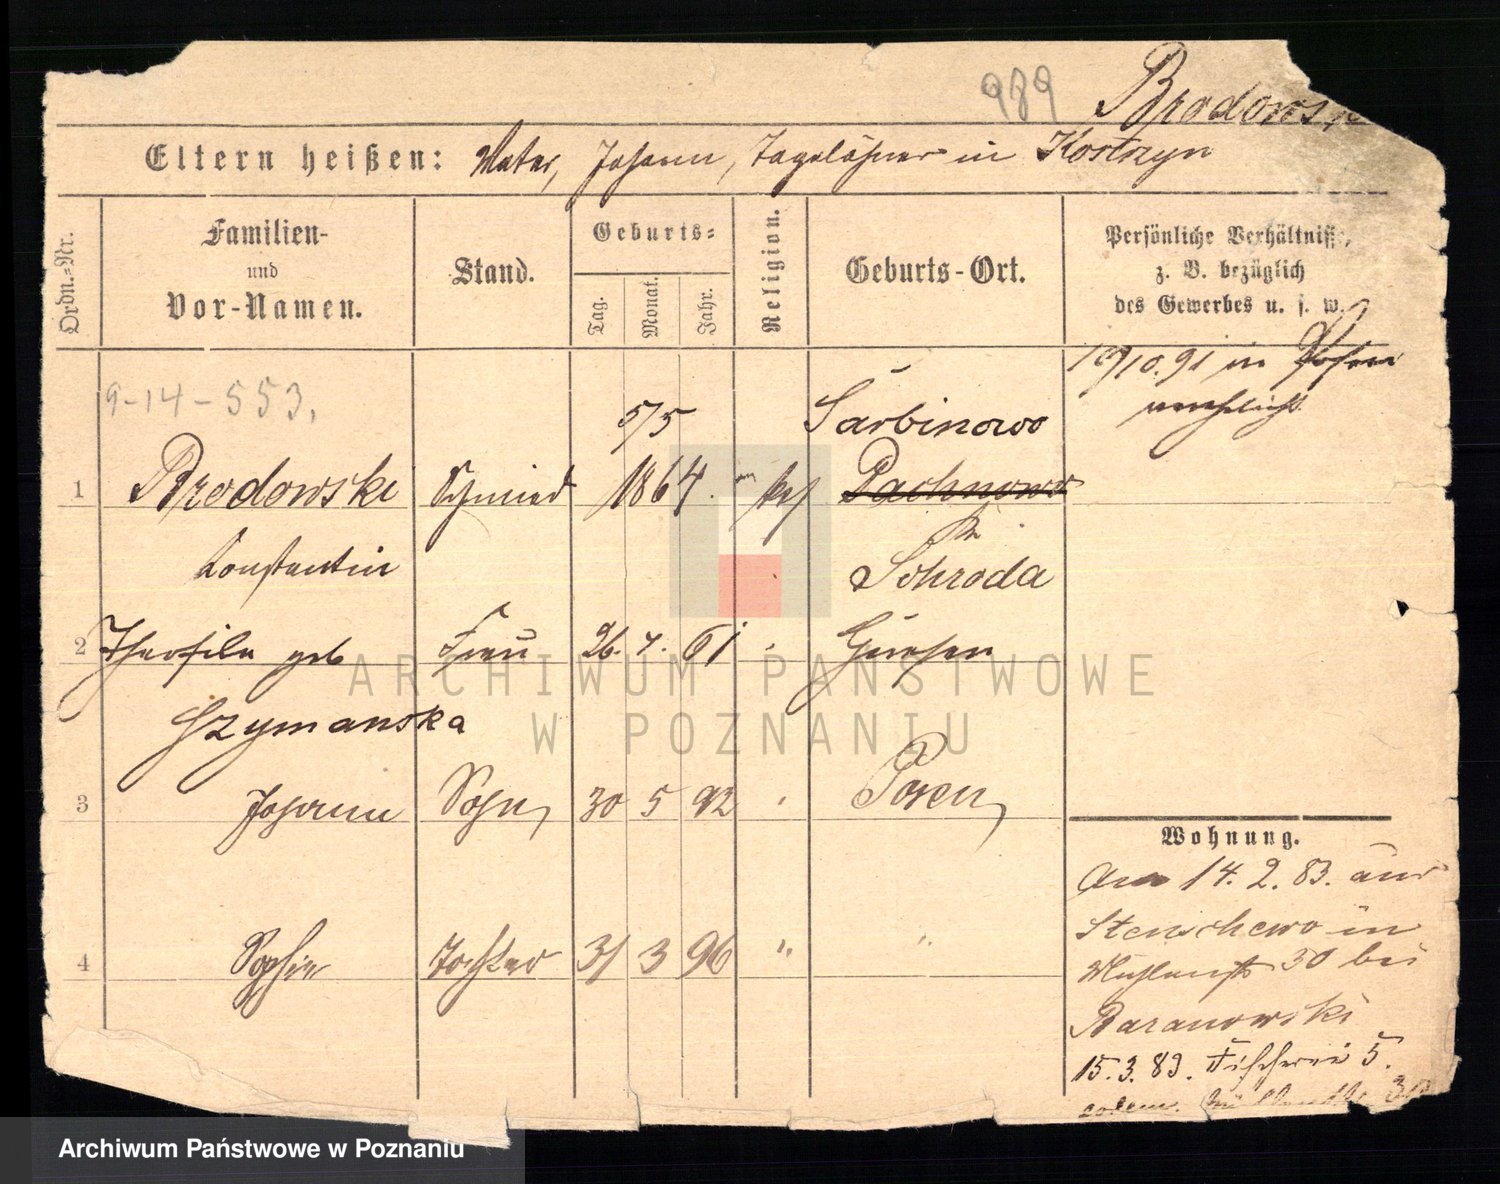 989 Brodowsk
Eltern heißen: Vater, Johann, Tagelöhner in Kostrzyn
Ordn.-Nr.
Familien-
und
Vor-Namen.
Stand.
Geburts-
Tag.
Monat.
Jahr.
Religion.
Geburts-Ort.
Persönliche Verhältnisse,
z. B. bezüglich
des Gewerbes u. s. w.
10/10.91 in Posen
verehelicht
9-14-553.
5/5 Sarbinowo
1 Brodowski Schmied 1864. kaj Pachnowo
Kr.
Constantin Schroda
2 Theofila geb Frau 26. 4. 61 Gnesen
Szymanska
3 Johann Sohn 30 5 92 Posen
Wohnung.
Am 14. 2. 83. aus
Stenschewo in
30 bei
4 Sophie Tochter 31 3 96 " "
Baranowski
15. 3. 83. Fischerei 5.
ARCHIWUM PAŃSTWOWE
W POZNANIU
Archiwum Państwowe w Poznaniu